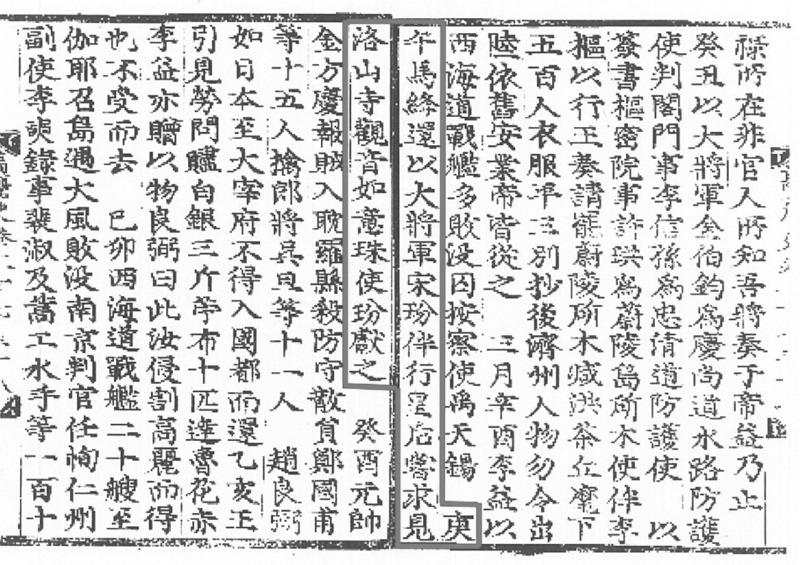 祿所在非官人所知吾將奏于帝益乃止
癸丑以大將軍金伯鈞爲慶尚道水路防護
使判閤門事李信孫爲忠清道防護使 以
簽書樞密院事許珙爲蔚陵島斫木使伴李
樞以行王奏請罷蔚陵斫木减洪茶丘麾下
五百人衣服平三別抄後濟州人物勿令出
陸依舊安業帝皆從之 三月辛酉李益以
西海道戰艦多敗没囚按察使禹天錫 庚
午馬絳還以大將軍宋玢伴行皇后嘗求見
洛山寺觀音如意珠使玢獻之 癸酉元帥
金方慶報賊入耽羅縣殺防守散員鄭國甫
等十五人擒郎將吳旦等十一人 趙良弼
如日本至大宰府不得入國都而還乙亥王
引見勞問贐白銀三斤苧布十匹達魯花赤
李益亦贈以物良弼曰此汝侵割高麗而得
也不受而去 己卯西海道戰艦二十艘至
伽耶召島遇大風敗没南京判官任恂仁州
副使李奭錄事裴淑及蒿工水手等一百十